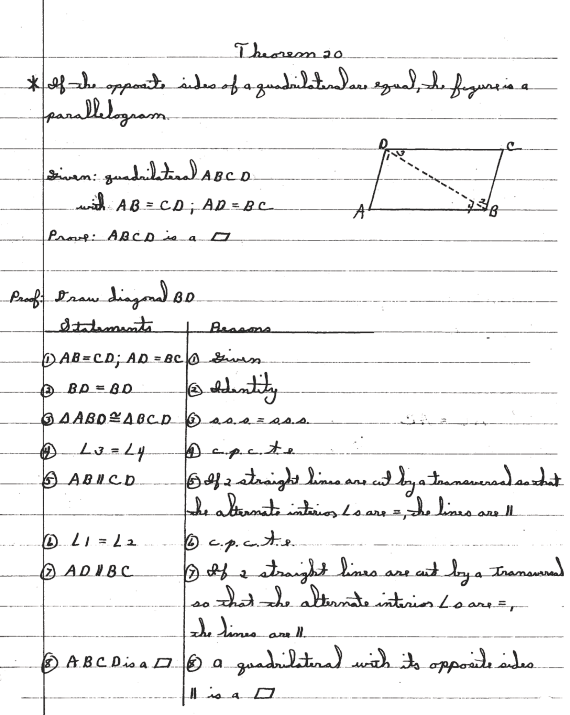 Theorem 20
* If the opposite sides of a quadrilateral are equal, the figure is a
parallelogram.
D 1 3 C
Given: quadrilateral ABCD
with AB = CD; AD = BC
A 4 2 B
Prove: ABCD is a ▱
Proof: Draw diagonal BD
Statements Reasons
① AB=CD; AD=BC ① Given
② BD = BD ② Identity
③ △ABD≅△BCD ③ s.s.s. = s.s.s.
④ ∠3 = ∠4 ④ c.p.c.t.e.
⑤ AB∥CD ⑤ If 2 straight lines are cut by a transversal so that
the alternate interior ∠s are =, the lines are ∥
⑥ ∠1 = ∠2 ⑥ c.p.c.t.e.
⑦ AD∥BC ⑦ If 2 straight lines are cut by a transversal
so that the alternate interior ∠s are =,
the lines are ∥.
⑧ ABCD is a ▱ ⑧ a quadrilateral with its opposite sides
∥ is a ▱